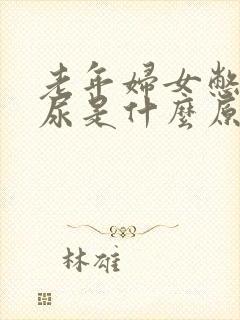 老年婦女憋
尿是什麼原
林雄